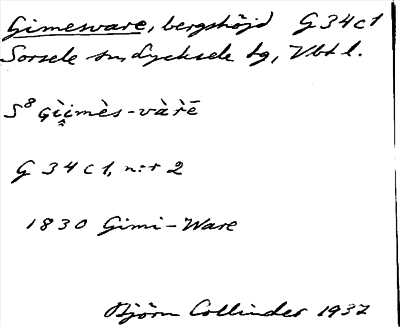 Gimesvare, bergshöjd G 34 c 1
Sorsele sn, Lycksele tg, Vbt l.
S⁸ Gi̬i̬mès-và̀rē
G 34 c 1, n:r 2
1830 Gimi-Ware
Björn Collinder 1937